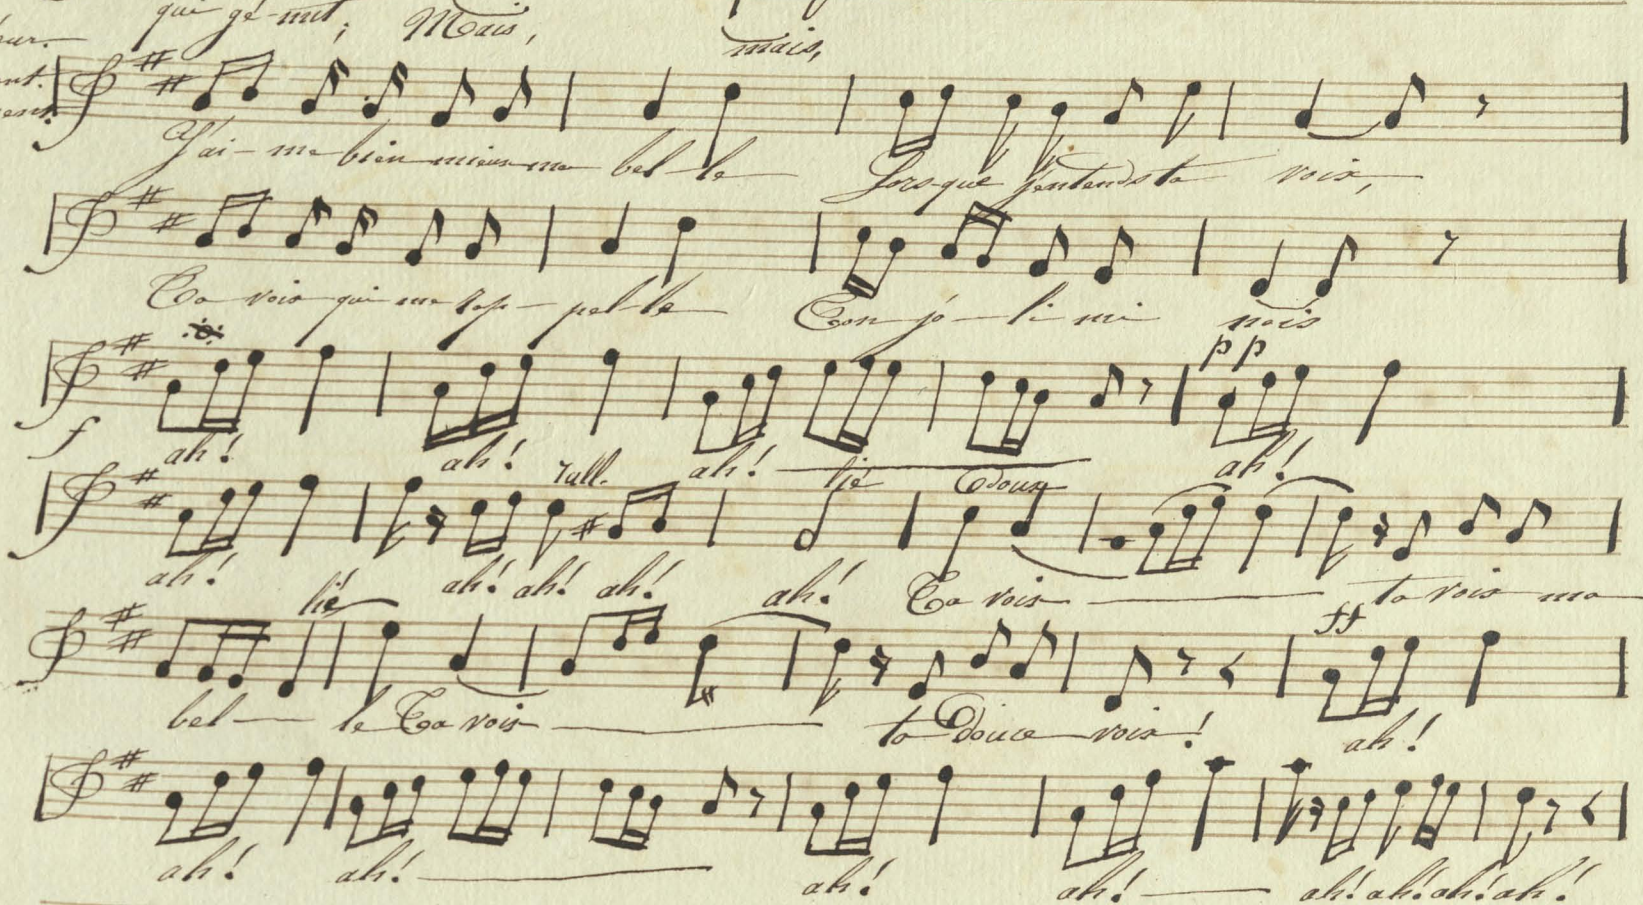 qui gé-mit; Mais, mais,
J'ai-me bien mieux ma bel-le Lorsque j'entends ta voix,
Ta voix qui me rap-pel-le Ton jo-li mi nois
pp
f ah! ah! rall. ah! lié Doux ah!
ah! lié ah! ah! ah! ah! Ta voix ta voix ma
ff
bel-le Ta voix ta Douce voix! ah!
ah! ah! ah! ah! ah! ah! ah! ah!